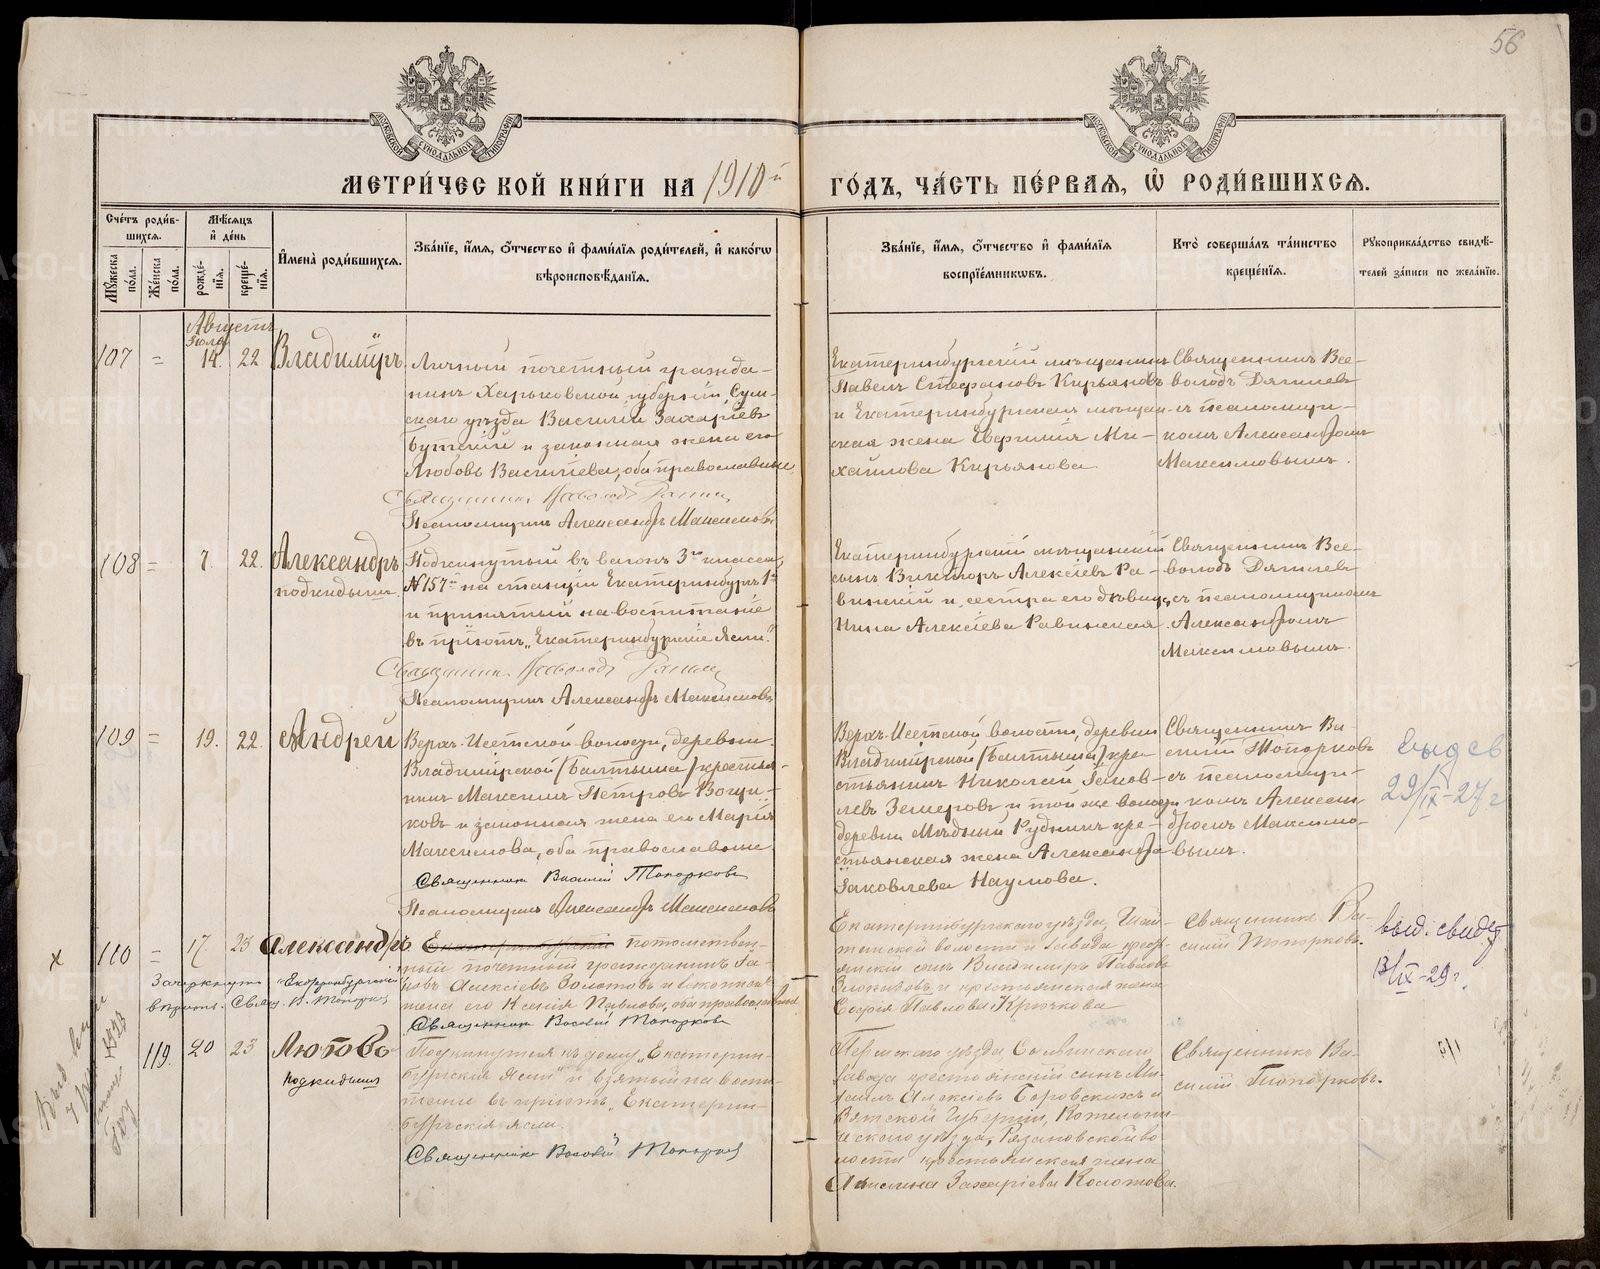 56
МОСКОВСКОЙ СѴНОДАЛЬНОЙ ТИПОГРАФІИ
МОСКОВСКОЙ СѴНОДАЛЬНОЙ ТИПОГРАФІИ
МЕТРИ́ЧЕСКОЙ КНИ́ГИ НА 1910й
ГО́ДЪ, ЧА́СТЬ ПЕ́РВАЯ, Ѡ҆ РОДИ́ВШИХСѦ.
Сче́тъ роди́в-
шихсѧ.
Мꙋ́жеска по́ла.
Же́нска по́ла.
Мѣ́сѧцъ
и҆ де́нь
рожде́-
нїѧ.
креще́-
нїѧ.
И҆мена̀ роди́вшихсѧ.
Зва́нїе, и҆́мѧ, ѻ҆́тчество и҆ фами́лїѧ роди́телей, и҆ како́гѡ
вѣроисповѣ́данїѧ.
Зва́нїе, и҆́мѧ, ѻ҆́тчество и҆ фами́лїѧ
воспрїе́мникѡвъ.
Кто̀ соверша́лъ та́инство
креще́нїѧ.
Рꙋкоприкла́дство свидѣ́-
телей за́писи по жела́нїю.
Августъ
Іюля
107 = 14. 22 Владиміръ
Личный почетный гражда-
нинъ Харьковской губерніи, Сум-
скаго уѣзда Василій Захаріевъ
и законная жена его
Любовь Васильева, оба православные
Священникъ Всеволодъ
Псаломщикъ Александръ Максимовъ
Екатеринбургскій мѣщанинъ
Павелъ Стефановъ Кирьяновъ
и Екатеринбургская мѣщан-
ская жена Евфимія Ми-
хайлова Кирьянова
Священникъ Все-
володъ
съ псаломщи-
комъ Александромъ
Максимовымъ.
108 = 7. 22. Александръ
подкидышъ
Подкинутый въ вагонъ 3го класса
№157й на станціи Екатеринбургъ 1й
и принятый на воспитаніе
въ пріютъ „Екатеринбургскіе Ясли".
Священникъ Всеволодъ
Псаломщикъ Александръ Максимовъ
Екатеринбургскій мѣщанскій
сынъ Викторъ Алексіевъ Ра-
винскій и сестра его дѣвица
Нина Алексіева Равинская
Священникъ Все-
володъ
съ псаломщикомъ
Александромъ
Максимовымъ.
109 = 19. 22. Андрей
Верхъ-Исетской волости, деревни
Владимірской (Балтыма) крестья-
нинъ Максимъ Петровъ
и законная жена его Марія
Максимова, оба православные
Священникъ Василій Топорковъ
Псаломщикъ Александръ Максимовъ
Верхъ-Исетской волости, деревни
Владимірской (Балтыма) кре-
стьянинъ Николай Іаков-
левъ Земеровъ и той же волости
деревни Мѣдный Рудникъ кре-
стьянская жена Александра
Іаковлева Наумова.
Священникъ Ва-
силій Топорковъ
съ псаломщи-
комъ Алексан-
дромъ Максимо-
вымъ.
выд св
29/IX-27 г
х
110 = 17 23 Александръ
Екатеринбургскій потомствен-
ный почетный гражданинъ Іа-
ковъ Алексіевъ Золотовъ и законная
жена его Ксенія Павлова, оба православные
Священникъ Василій Топорковъ
Зачеркнуто „Екатеринбургскій"
вѣрить. Свящ. В. Топорковъ
волости и завода крестьянскій
сынъ Владиміръ Павловъ
и крестьянская жена
Софія Павлова Крючкова
Священникъ Ва-
силій Топорковъ.
выд. свидет
13/IX-29 г.
119. 20 23 Любовь
подкидышъ
Подкинутая къ дому „Екатерин-
бургскія Ясли" и взятый на воспи-
таніе въ пріютъ „Екатерин-
бургскія ясли.
Священникъ Василій Топорковъ
Пермскаго уѣзда,
завода крестьянскій сынъ Ми-
хаилъ Алексіевъ Боровскихъ и
Вятской губерніи, Котельни-
ческаго уѣзда, Рязановской во-
лости крестьянская жена
Захаріева Колотова.
Священникъ Ва-
силій Топорковъ.